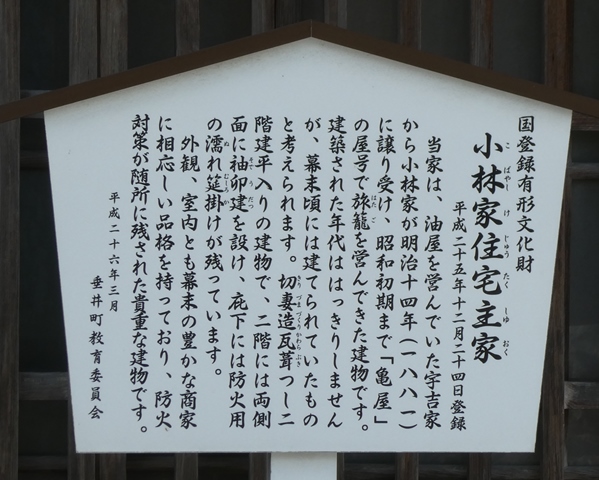 国登録有形文化財
小林家住宅主家
こばやしけじゅうたくしゅおく
平成二十五年十二月二十四日登録
当家は、油屋を営んでいた宇吉家
から小林家が明治十四年(一八八一)
に譲り受け、昭和初期まで「亀屋」
の屋号で旅籠を営んできた建物です。
はたご
建築された年代ははっきりしません
が、幕末頃には建てられていたもの
と考えられます。切妻造瓦葺つし二
きりづまづくりかわらぶき
階建平入りの建物で、二階には両側
面に袖卯建を設け、庇下には防火用
そでうだつ
の濡れ筵掛けが残っています。
ぬ むしろか
外観、室内とも幕末の豊かな商家
に相応しい品格を持っており、防火、
対策が随所に残された貴重な建物です。
平成二十六年三月
垂井町教育委員会